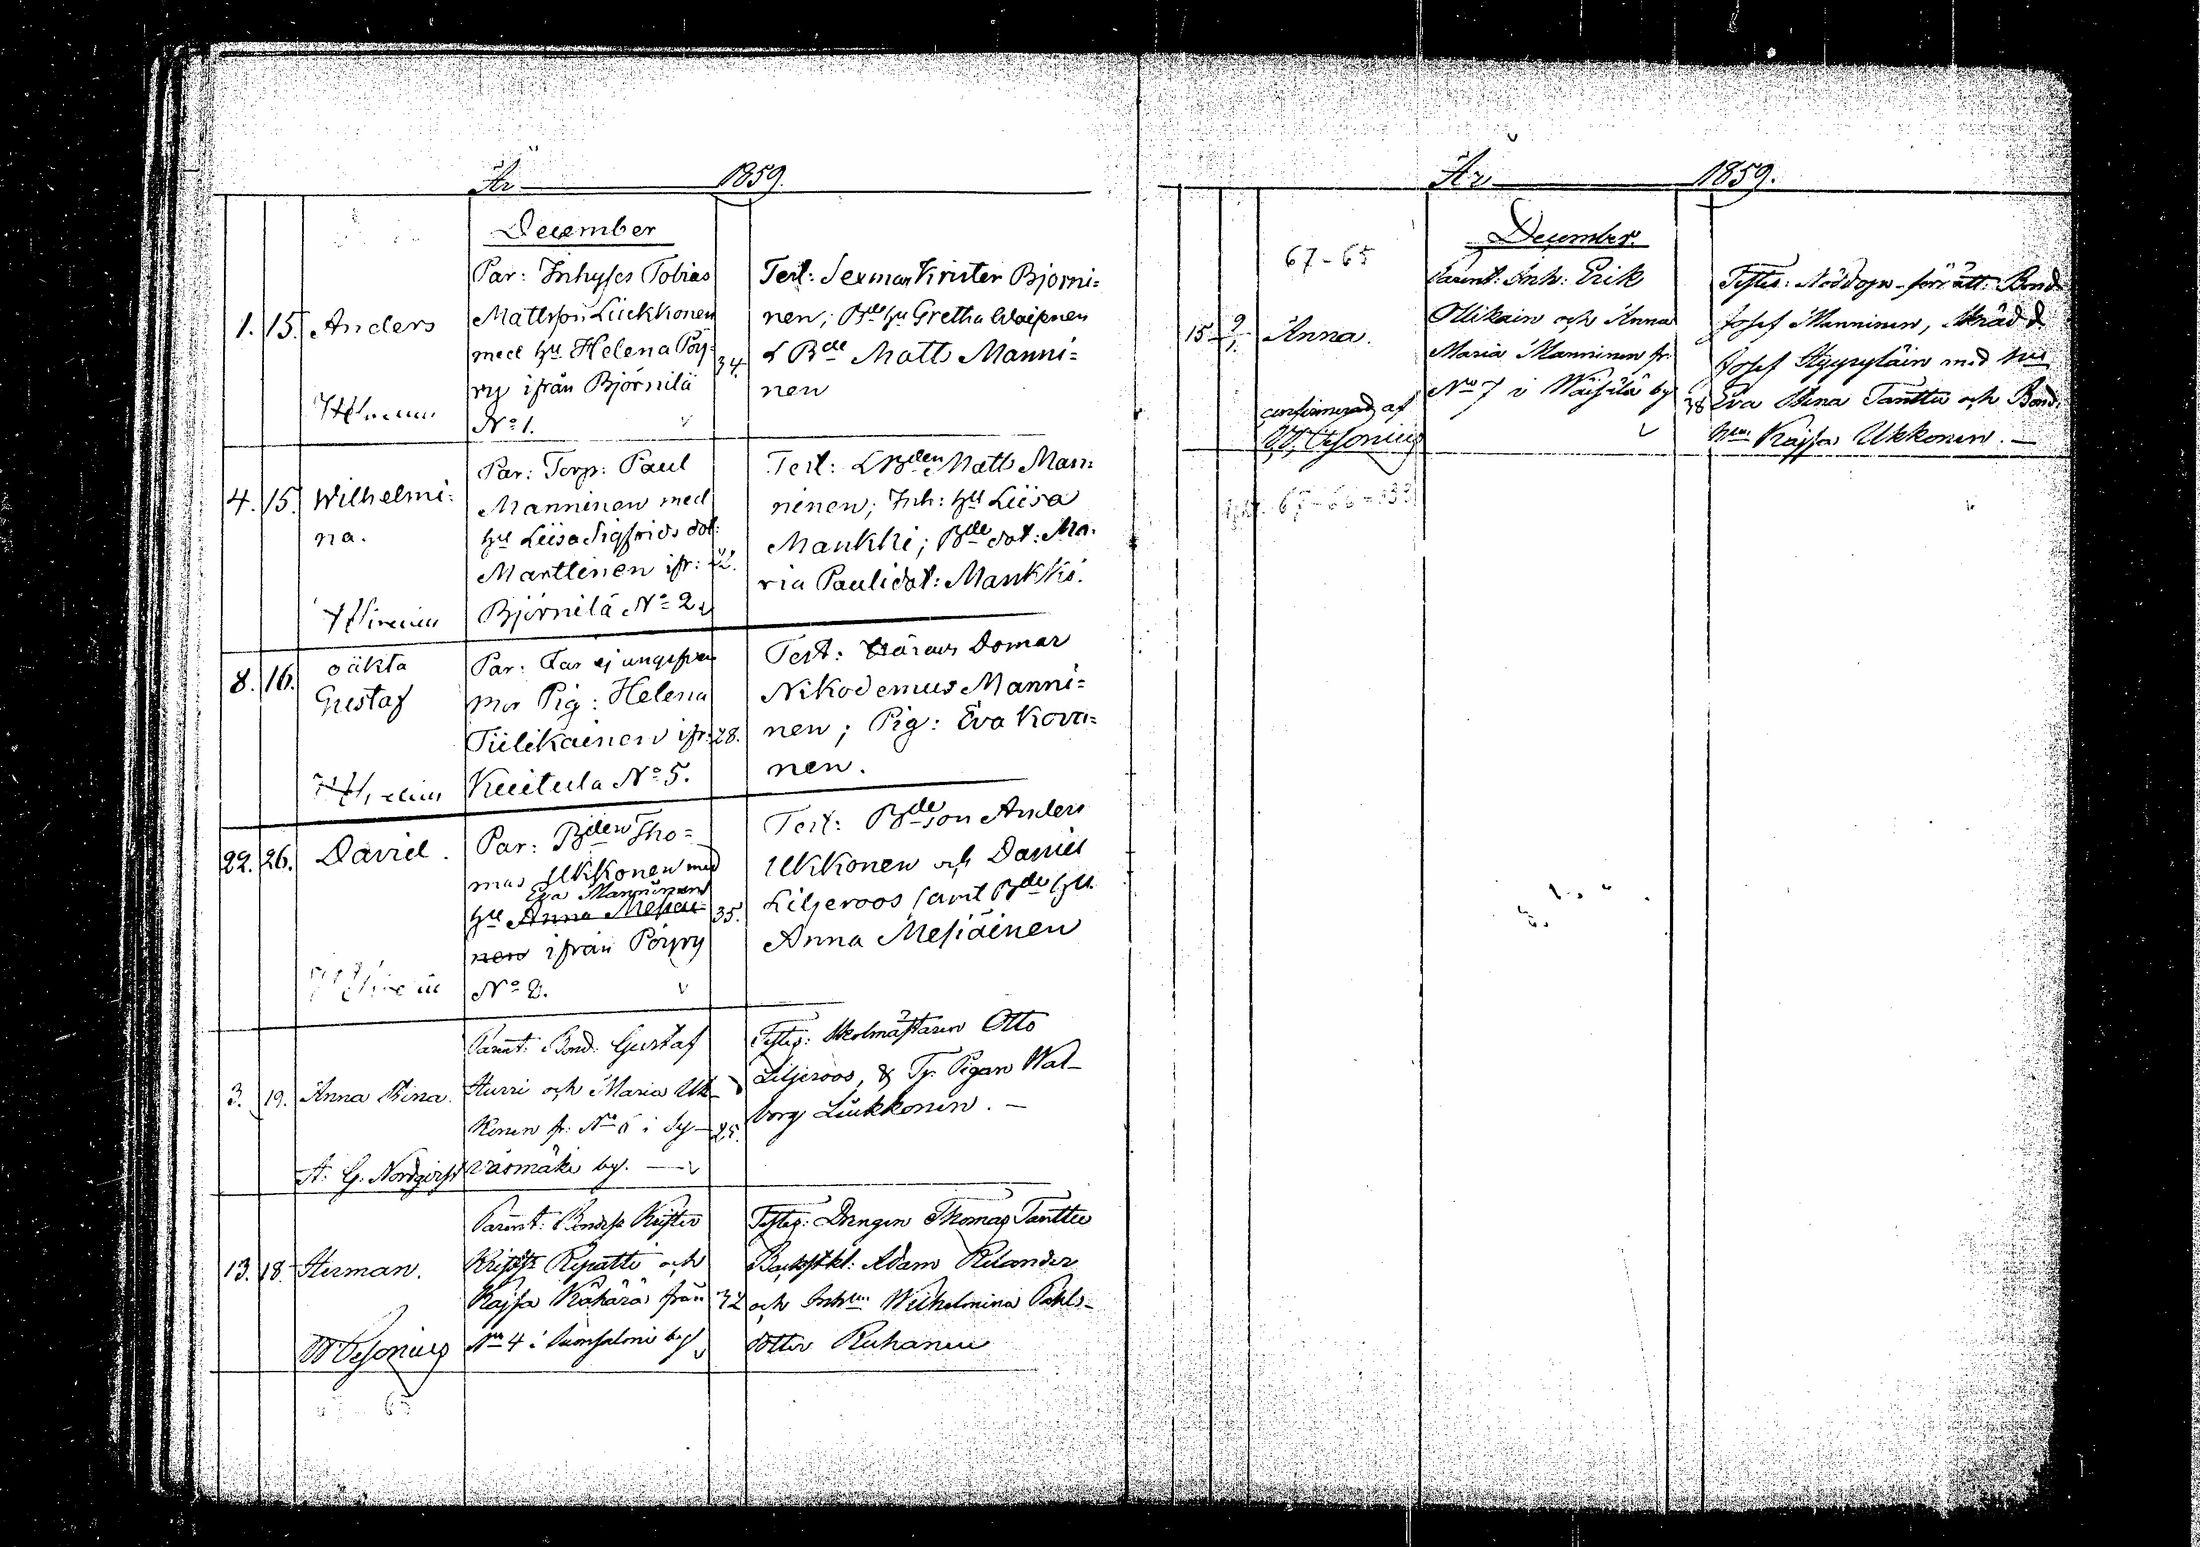 År 1859.
December
1. 15. Anders
Par: Inhyses Tobias
Mattsson Liukkonen
med hu Helena Pöy-
ry ifrån Björnilä
No 1.
34.
Test: Sexman Krister Björni=
nen; Bde hu Gretha Woipnen
L Bde Matts Manni=
nen
4. 15. Wilhelmi-
na.
Par: Torp: Paul
Manninen med
hu Liisa Sigfrids dot:
Marttinen ifr:
Björnilä No 2.
Test: LBden Matts Man-
ninen; Inh: hu Liisa
Maukki; Bde dot: Ma-
ria Paulidot: Maukki.
8. 16. oäkta
Gustaf
Par: Far ej angifven
mor Pig: Helena
Tiilikainen ifr: 28.
Kuitula No 5.
Test: Härads Domar
Nikodemus Manni=
nen; Pig: Eva Kova=
nen.
22. 26. David.
Par: Bden Tho=
mas Ukkonen med
Eva Manninen
hu Anna Mesiäi-
nen ifrån Pöyry
No 2.
35.
Test: Bde son Anders
Ukkonen och Daniel
Liljeroos samt Bde hu
Anna Mesiäinen
3. 19. Anna Stina.
A. G. Nordqvist
Parent: Bond: Gustaf
Hurri och Maria Uk-
konen fr: No 6 i Sy-
väsmäki by. —
25.
Testes: Skolmästaren Otto
Liljeroos, & Tj. Pigan Wal-
borg Liukkonen. —
13. 18. Herman.
W Cesonius
Parent: Krister
Repatti och
Kajsa Kähärä från
No 4 i by
32
Testes: Drengen Thomas Tanttu
Adam Relander
och Inhn Wilhelmina Pahls-
dotter Ruhanen
År 1859.
December.
67-65
15. 9/1. Anna.
confirmerad af
W. Cesonius
Parent: Inh: Erik
Ollikain och Anna
Maria Manninen fr.
No 7 i Wäisälä by
38
Testes: Nöddopn-förrätt: Bond.
Josef Manninen, Skrädd
Josef Hyyryläin med hu
Eva Stina Tanttu och Bond.
hun Kajsa Ukkonen. —